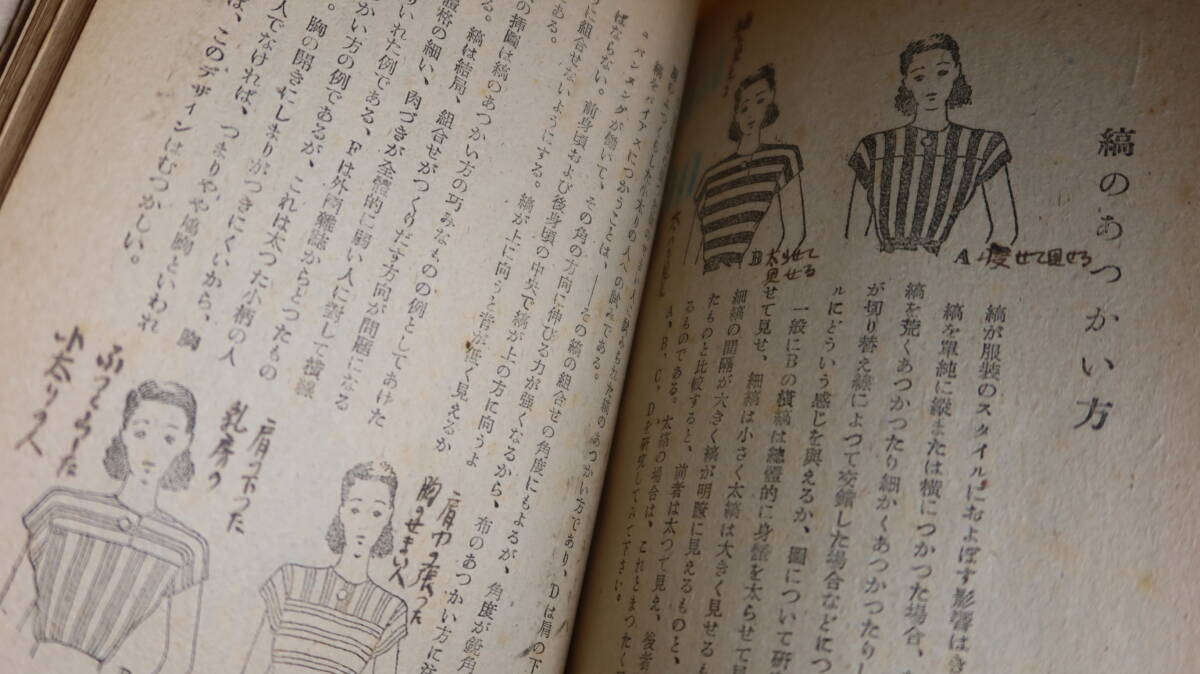 縞のあつかい方
A 瘦せて見せる
B 太せて
見せる
縞が服装のスタイルにおよぼす影響はき
縞を單純に縱または橫につかつた場合、
縞を荒くあつかつたり細かくあつかつたりし
が切り替え線によつて交錯した場合などにつ
ルにどういう感じを與えるか、圖について研
一般にBの橫縞は總體的に身體を太らせて見
せて見せ、細縞は小さく太縞は大きく見せるも
細縞の間隔が大きく縞が明瞭に見えるものと、
たものと比較すると、前者は太つて見え、後者
るものである。太縞の場合は、これとまつたく
A、B、C、Dを研究してみて下さい。
のあつかい方であり、Dは肩の下
人への試みである。
縞をバイアスにつかうことは、——その縞の組合せの角度にもよるが、角度が鋭角
。パンヌングが働いて、その角の方向に伸びる力が強くなるから、布のあつかい方に注
ばならない。前身頃および後身頃の中央で縞が上の方に向うよ
うに組合せないようにする。縞が上に向うと背が低く見えるか
ある。
の挿圖は縞のあつかい方の巧みなものの例としてあけた
る。縞は結局、組合せがつくりだす方向が問題になる
體格の細い、肉づきが全體的に弱い人に對して橫線
りいれた例である、Fは外國雜誌からとつたもの
かい方の例であるが、これは太つた小柄の人
。胸の開きにしまりがつきにくいから、胸
人でなければ、つまりやや鳩胸といわれ
ば、このデザインはむつかしい。
肩巾の張つた
胸のせまい人
肩の下つた
乳房の
ふつくらした
小太りの人